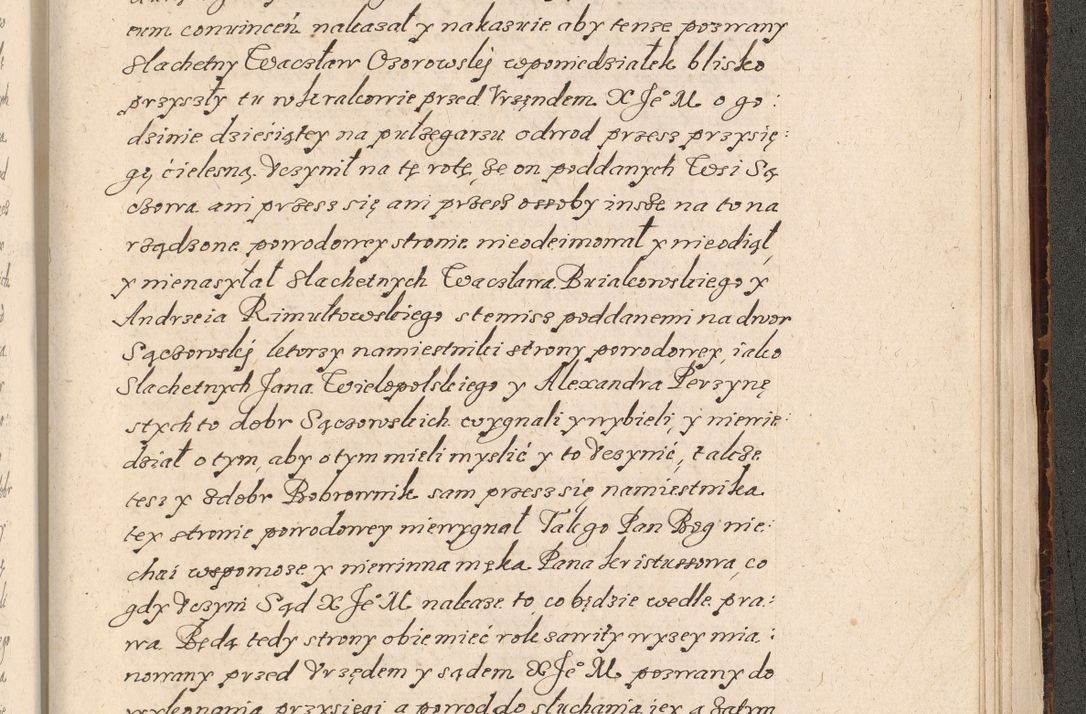 eum conuinceń nakazał y nakazuie aby tenze pozwany
slachetny Waczław Ozorowskj wponiedziałek blisko
przyszły tu wkrakowie przed Vrzęndem X Je° M o go:
dzinie dziesiątey na pułzegarzu odwod przesz przysię:
gę ćielesną. Vczynił na tę rotę, ze on poddanych Wsi Są
czowa ani przesz się ani przesz ossoby insze na to na
rządzone powodowey stronie nieodeimował y nieodiął
y nienasyłał slachetnych Waczława Bialkowskiego y
Andrzeia Rimułtowskiego stemisz poddanemi na dwor
Sączowskj, ktorzy namiestniki strony powodowey, iako
slachetnych Jana Wielopolskiego y Alexandra Perzynę
stych to dobr Sączowskich wygnali y wybieli, y niewie:
dział o tym, aby o tym mieli myslić y to Vczynić, takze
tesz y zdobr Bobrownik sam przesz się namiestnika
tey stronie powodowey niewygnał Tak go Pan Bog nie:
chai wspomoze y niewinna męka Pana kristussowa, co
gdy Vczyni Sąd X Je° M nakaze to, co będzie wedle pra:
wa Będą tedy strony obie mieć rok zawiły wyzey mia:
nowany przed Vrzędem y sądem X Je° M pozwany do
wykonania przysięgi a powod do słuchania iey a zatym